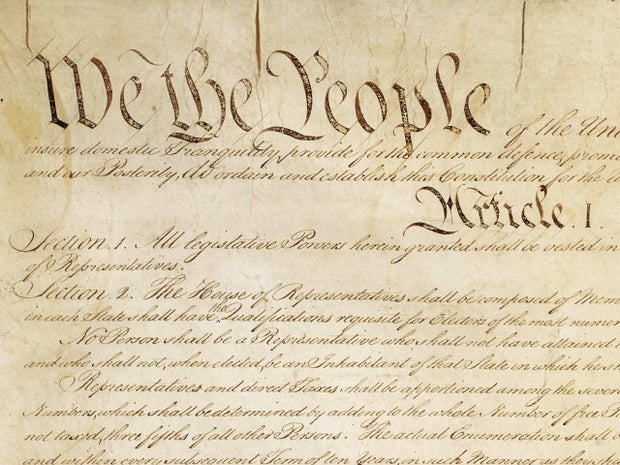 We the People of the Uni
insure domestic Tranquility, provide for the common defence, promo
and our Posterity, do ordain and establish this Constitution for the U
Article. I.
Section. 1. All legislative Powers herein granted shall be vested in
of Representatives.
Section. 2. The House of Representatives shall be composed of Mem
in each State shall have the Qualifications requisite for Electors of the most numer
No Person shall be a Representative who shall not have attained t
and who shall not, when elected, be an Inhabitant of that State in which he s
Representatives and direct Taxes shall be apportioned among the sever
Numbers, which shall be determined by adding to the whole Number of free P
not taxed, three fifths of all other Persons. The actual Enumeration shall b
and within every subsequent Term of ten Years, in such Manner as they sha